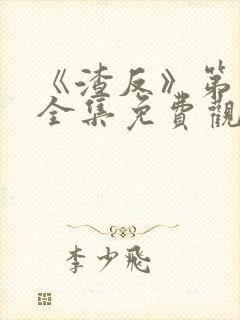 《渣反》第
全集免費觀
李少飛